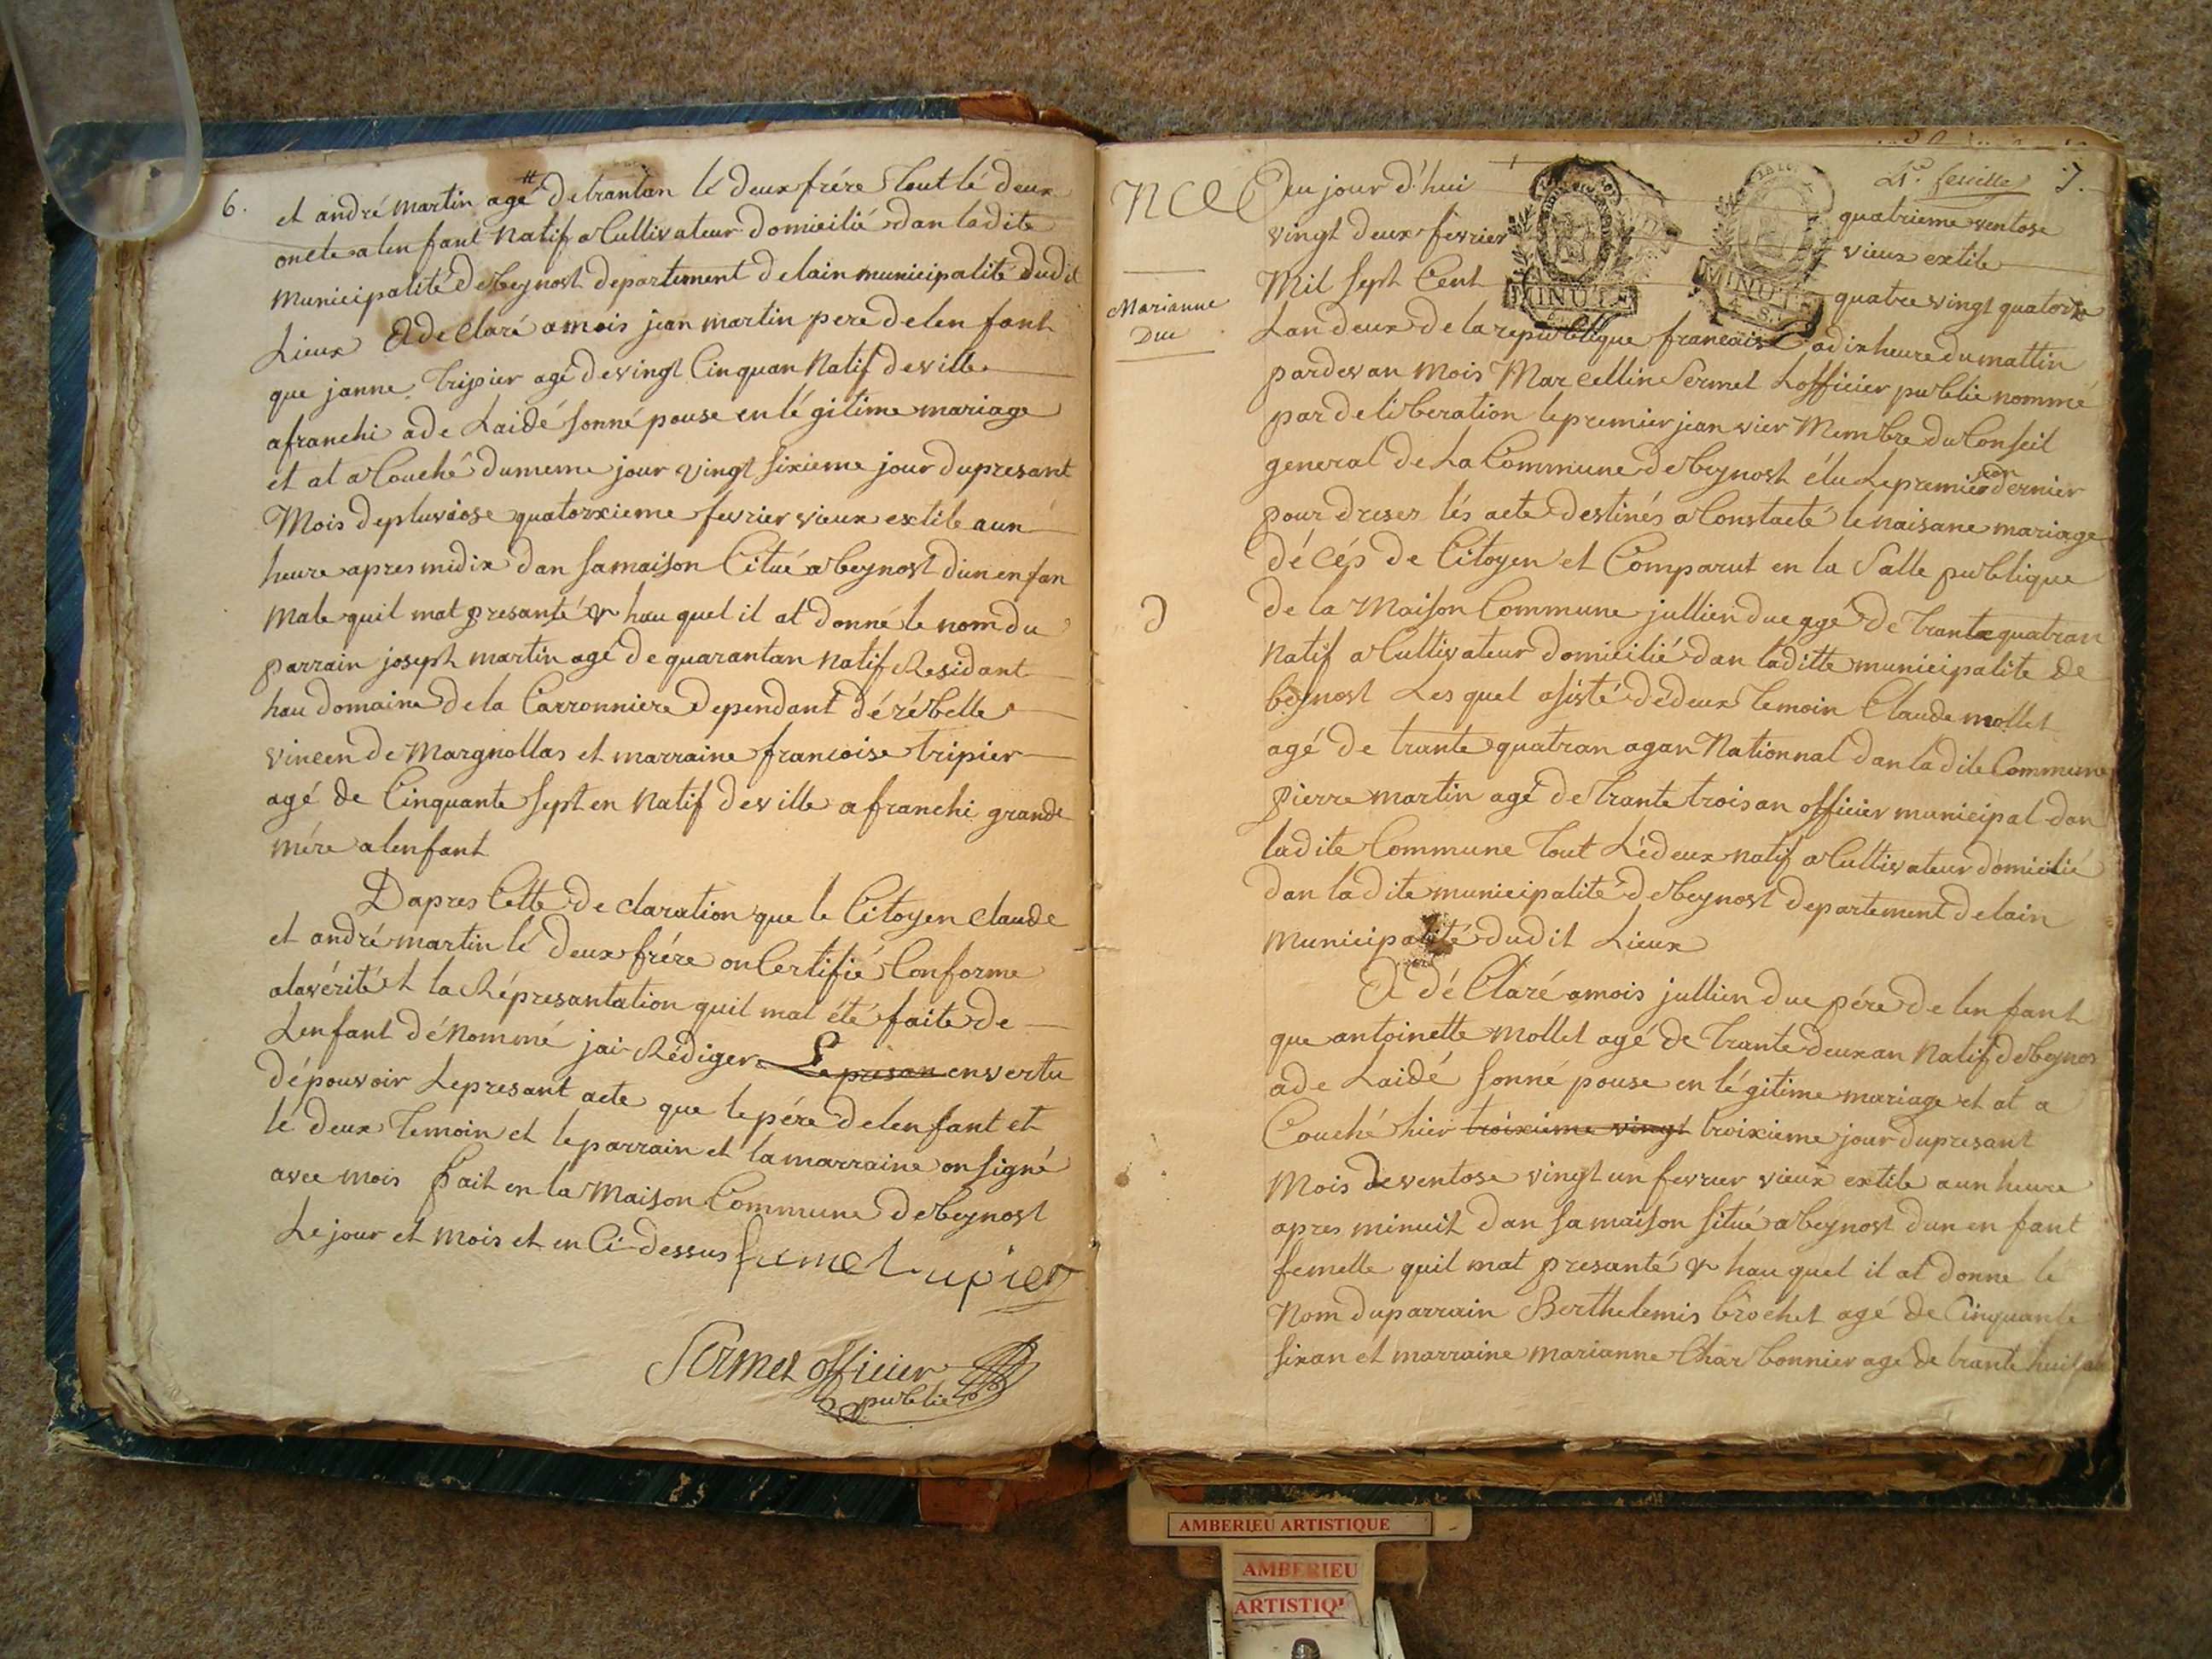 6.
et andré martin agé de trantan lé deux frére tout lé deux
oncle alenfant natif a Cultivateur domicilié dan ladite
municipalité de beynost departement delain municipalité dudit
Lieux A declaré amois jean martin pere delenfant
que janne tripier agé de vingt Cinquan natif de ville
afranchi ade Laidé sonné pouse en légitime mariage
et at a Couché dumeme jour vingt sixieme jour dupresant
Mois depluviose quatorxieme fevrier vieux extile aun
heure apres midix dan samaison Citué abeynost dun enfan
male quil mat presanté & hau quel il at donné le nom du
parrain joseph martin agé de quarantan natif Residant
hau domaine de la Carronniere dependant dérébelle
vincen de Margnollas et marraine francoise tripier
agé de Cinquante sept en natif deville afranchi grande
mére alenfant
Dapres Cette declaration que le Citoyen Claude
et andré martin lé deux frére on Certifié Conforme
alavérité et la Répresantation quil mat été faite de
Lenfant dénommé jai Rédiger Le presan envertu
dépouvoir Lepresant acte que le pére delenfant et
lé deux temoin et leparrain et lamarraine on signé
avec mois fait en la Maison Commune debeynost
Le jour et mois et en Ci-dessus
Sermet officier
public
7.
4e. feuille
NCe
Marianne
Duc
D
Au jour d'hui quatrieme ventose
vingt deux fevrier vieux extile
Mil sept Cent quatre vingt quatorze
MINUTE
MINUTE
Lan deux de la republique francaise adix heure du mattin
pardevan mois Marcellin Sermet Lofficier public nommé
par deliberation le premier jean vier Membre du Conseil
general de La Commune debeynost élu Lepremier dernier
pour dreser lés acte destinés a Constacté le naisane mariage
décés de Citoyen et Comparut en la Salle publique
de la Maison Commune jullien duc agé de trante quatran
Natif a Cultivateur domicilié dan laditte municipalite de
beynost Les quel asisté dédeux temoin Claude mollet
agé de trante quatran agan Nationnal dan ladite Commune
pierre martin agé de trante troisan officier municipal dan
ladite Commune tout Lédeux natif a Cultivateur domicilié
dan ladite municipalité debeynost departement delain
municipalité dudit Lieux
A déClaré amois jullien duc pére delenfant
que antoinette mollet agé de trante deux an Natif debeynos
ade Laidé sonné pouse en légitime mariage et at a
Couché hier troixieme vingt troixieme jour dupresant
Mois deventose vingt un fevrier vieux extile aun heure
apres minuit dan sa maison situé abeynost dun enfant
femelle quil mat presanté & hau quel il at donne le
Nom duparrain Berthelemis brochet agé de Cinquante
sixan et marraine marianne Charbonnier agé de trante huit an
AMBERIEU ARTISTIQUE
AMBERIEU
ARTISTIQ